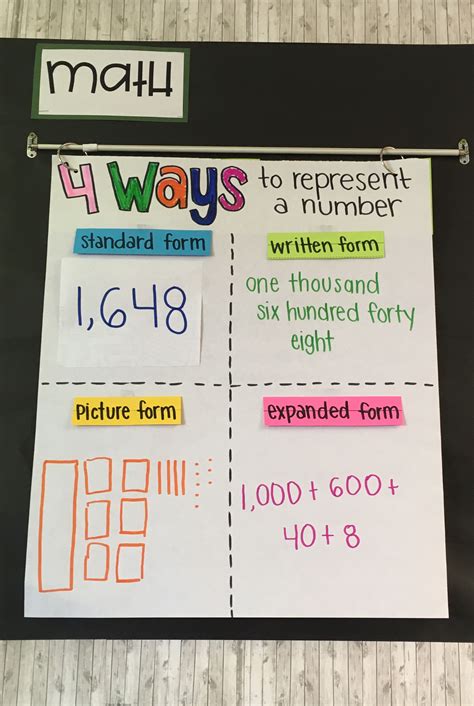 math
4 Ways to represent
a number
standard form
1,648
written form
one thousand
six hundred forty
eight
picture form
expanded form
1,000 + 600 +
40 + 8